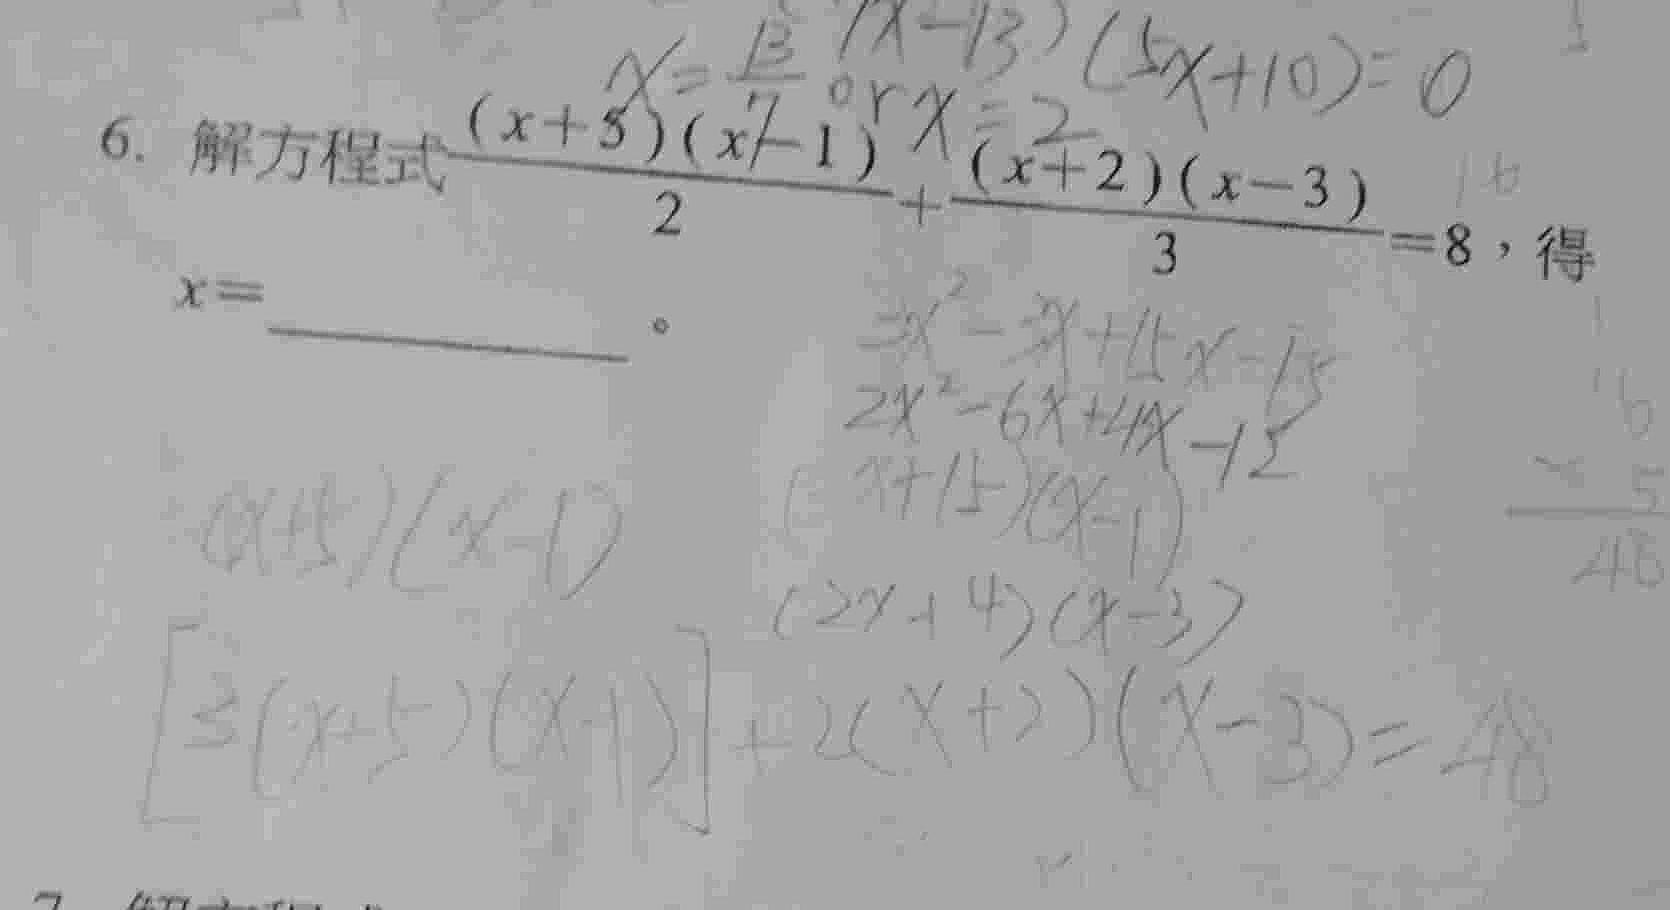 (7x-13)(5x+10)=0
x=13/7 or x=2
6. 解方程式 (x+5)(x-1)/2 + (x+2)(x-3)/3 =8,得
16
x=______。
3x²-3x+15x-15
2x²-6x+4x-12
(x+5)(x-1)
(x+15)(x-1)
(2x+4)(x-3)
[3(x+5)(x-1)]+2(x+2)(x-3)=48